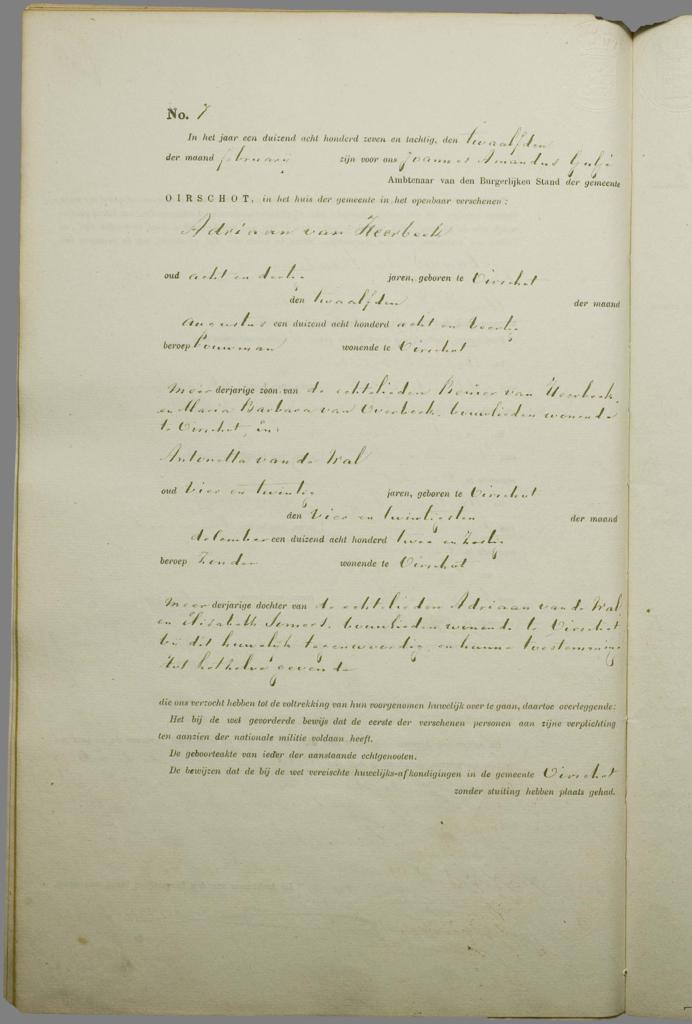 No. 7
In het jaar een duizend acht honderd zeven en tachtig, den twaalfden
der maand februarij zijn voor ons Joannes Amandus
Ambtenaar van den Burgerlijken Stand der gemeente
OIRSCHOT, in het huis der gemeente in het openbaar verschenen:
Adriaan van Heerbeek
oud acht en dertig jaren, geboren te Oirschot
den twaalfden der maand
augustus een duizend acht honderd acht en veertig
beroep bouwman wonende te Oirschot
meer derjarige zoon van de echtelieden van Heerbeek
en Maria Barbara van Overbeek, bouwlieden wonende
te Oirschot, en:
Antonetta van de Wal
oud vier en twintig jaren, geboren te Oirschot
den vier en twintigsten der maand
december een duizend acht honderd twee en zestig
beroep zonder wonende te Oirschot
meer derjarige dochter van de echtelieden Adriaan van de Wal
en Elisabeth Somers, bouwlieden wonende te Oirschot
bij dit huwelijk tegenwoordig en hunne toestemming
tot hetzelve gevende
die ons verzocht hebben tot de voltrekking van hun voorgenomen huwelijk over te gaan, daartoe overleggende:
Het bij de wet gevorderde bewijs dat de eerste der verschenen personen aan zijne verplichting
ten aanzien der nationale militie voldaan heeft.
De geboorteakte van ieder der aanstaande echtgenooten.
De bewijzen dat de bij de wet vereischte huwelijks-afkondigingen in de gemeente Oirschot
zonder stuiting hebben plaats gehad.